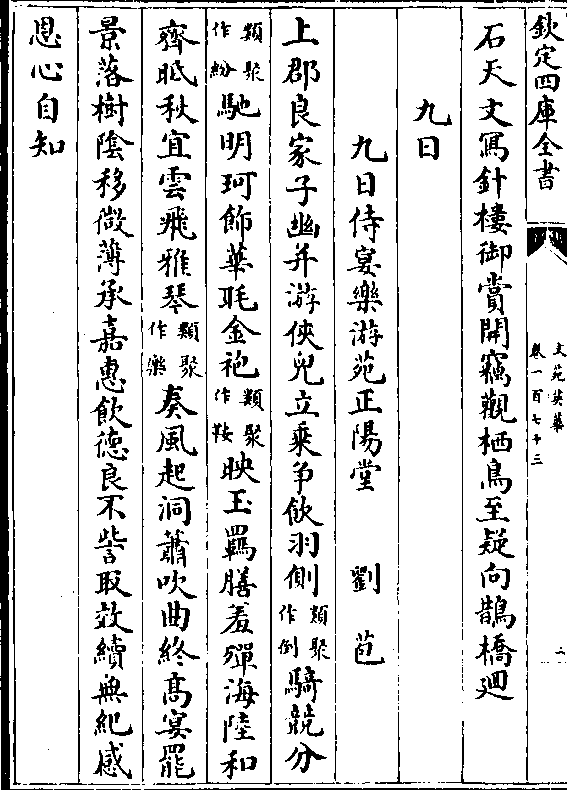 欽定四庫全書
文苑英華
卷一百七十三
二
石天文寫針樓御賞開竊觀栖鳥至疑向鵲橋廻
九日
九日侍宴樂游苑正陽堂 劉苞
上郡良家子幽并游俠兒立乘爭飲羽側類聚作倒騎競分
類聚作紛馳明珂飾華毦金䄂類聚作鞍映玉羈膳羞殫海陸和
齊眂秋宜雲飛雅琴類聚作樂奏風起洞簫吹曲終高宴罷
景落樹陰移微薄承嘉惠飲德良不訾取效績無紀感
恩心自知